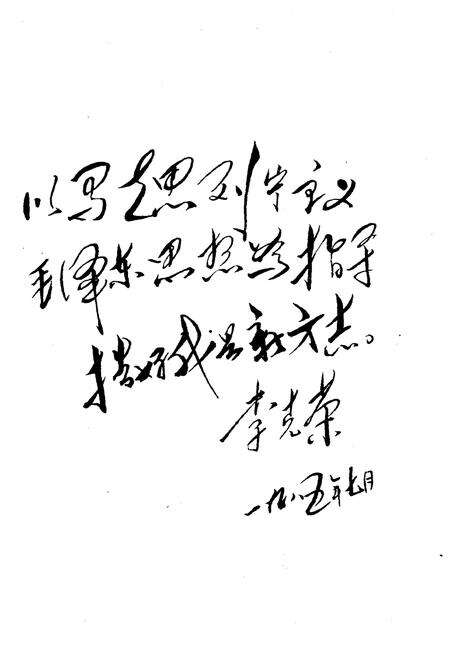 以马克思列宁主义
毛泽东思想为指导
搞好我县新方志。
李克荣
一九八五年七月